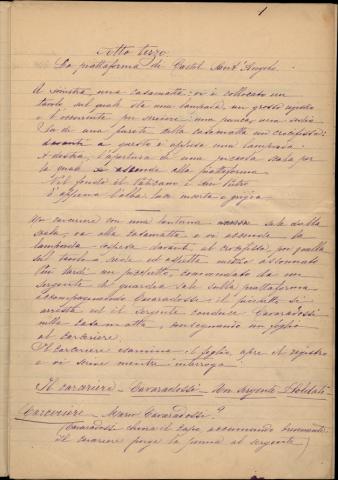 1
Atto terzo
La piattaforma di Castel Sant'Angelo.
A sinistra, una casamatta: vi è collocato un
tavolo, sul quale sta una lampada, un grosso registro
e l'occorrente per scrivere: una panca, una sedia
Su di una parete della casamatta un crocifisso:
davanti a questo è appesa una lampada.
A destra, l'apertura di una piccola scala per
la quale si ascende alla piattaforma
Nel fondo il Vaticano e San Pietro
È appena l'alba: luce incerta e grigia
Un carceriere con una lanterna sale dalla
scala, va alla casamatta e vi accende la
lampada sospesa davanti al crocifisso, poi quella
sul tavolo: siede ed aspetta mezzo assonnato
Più tardi un picchetto, comandato da un
Sergente di guardia sale sulla piattaforma
accompagnando Cavaradossi: il picchetto si
arresta ed il Sergente conduce Cavaradossi
nella casamatta, consegnando un foglio
al carceriere.
Il carceriere esamina il foglio, apre il registro
e vi scrive mentre interroga:
Il carceriere - Cavaradossi - Un Sergente - Soldati
Carceriere - Mario Cavaradossi?
(Cavaradossi china il capo, assentendo
Il carceriere porge la penna al Sergente)